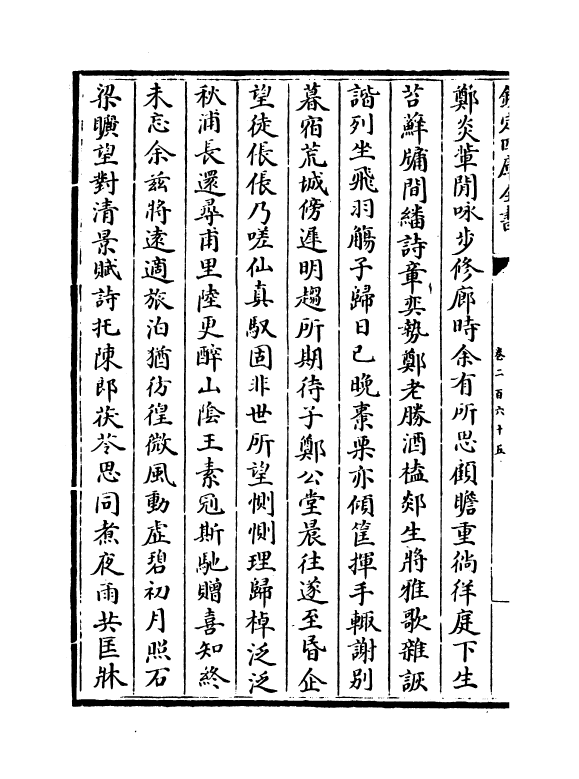 欽定四庫全書
卷二百六十五
鄭炎輩閒咏步修廊時余有所思顧瞻重徜徉庭下生
苔蘚牗間繙詩章奕勢鄭老勝酒榼郯生將雅歌雜詼
諧列坐飛羽觴子歸日已晚棗栗亦傾筐揮手輙謝别
暮宿荒城傍遲明趨所期待子鄭公堂晨往遂至昏企
望徒倀倀乃嗟仙真馭固非世所望惻惻理歸棹泛泛
秋浦長還尋甫里陸更醉山陰王素𡨚斯馳贈喜知終
未忘余兹將逺適旅泊猶彷徨微風動虚碧初月照石
梁曠望對清景賦詩托陳郎茯苓思同煮夜雨共匡牀